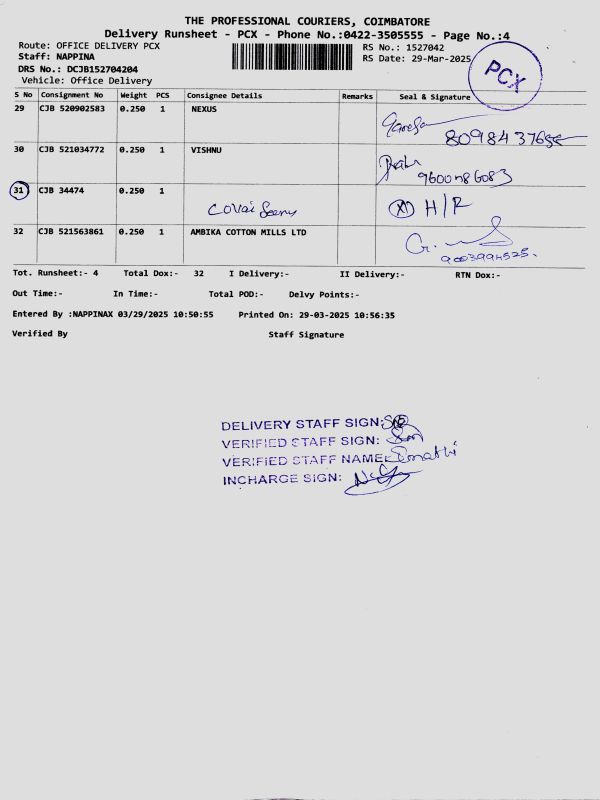 THE PROFESSIONAL COURIERS, COIMBATORE
Delivery Runsheet - PCX - Phone No.:0422-3505555 - Page No.:4
Route: OFFICE DELIVERY PCX RS No.: 1527042
Staff: NAPPINA RS Date: 29-Mar-2025
DRS No.: DCJB152704204
Vehicle: Office Delivery
PCX
S No Consignment No Weight PCS Consignee Details Remarks Seal & Signature
29 CJB 520902583 0.250 1 NEXUS
30 CJB 521034772 0.250 1 VISHNU
9600786083
31 CJB 34474 0.250 1 Covai H/R
32 CJB 521563861 0.250 1 AMBIKA COTTON MILLS LTD
9003994525.
Tot. Runsheet:- 4 Total Dox:- 32 I Delivery:- II Delivery:- RTN Dox:-
Out Time:- In Time:- Total POD:- Delvy Points:-
Entered By :NAPPINAX 03/29/2025 10:50:55 Printed On: 29-03-2025 10:56:35
Verified By Staff Signature
DELIVERY STAFF SIGN:
VERIFIED STAFF SIGN:
VERIFIED STAFF NAME:
INCHARGE SIGN: